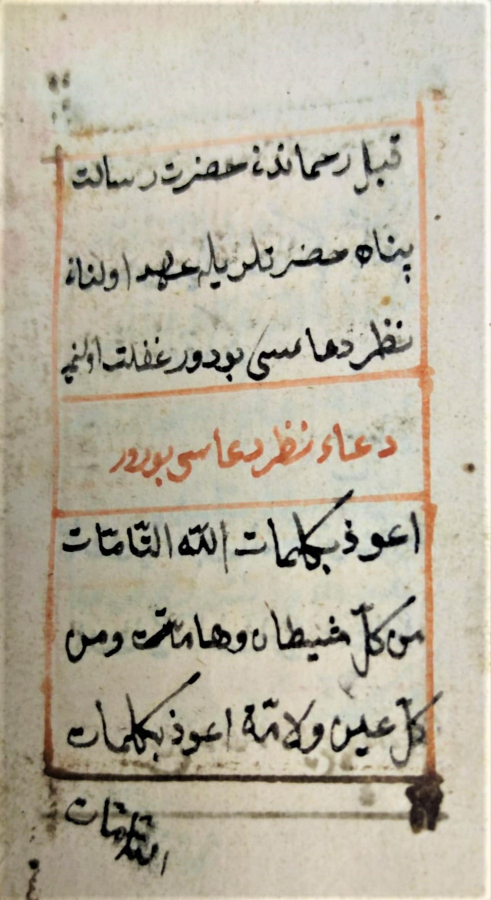 قبل رحماندن حضرت رسالت
پناه حضرتلريله عهد اولنان
نظر دعاسی بودور غفلت اولنمیه
دعاء نظر دعاسی بودور
اعوذ بكلمات الله التامّات
من كلّ شيطان وهامّت ومن
كلّ عين ولامّة اعوذ بكلمات
الله التامّات